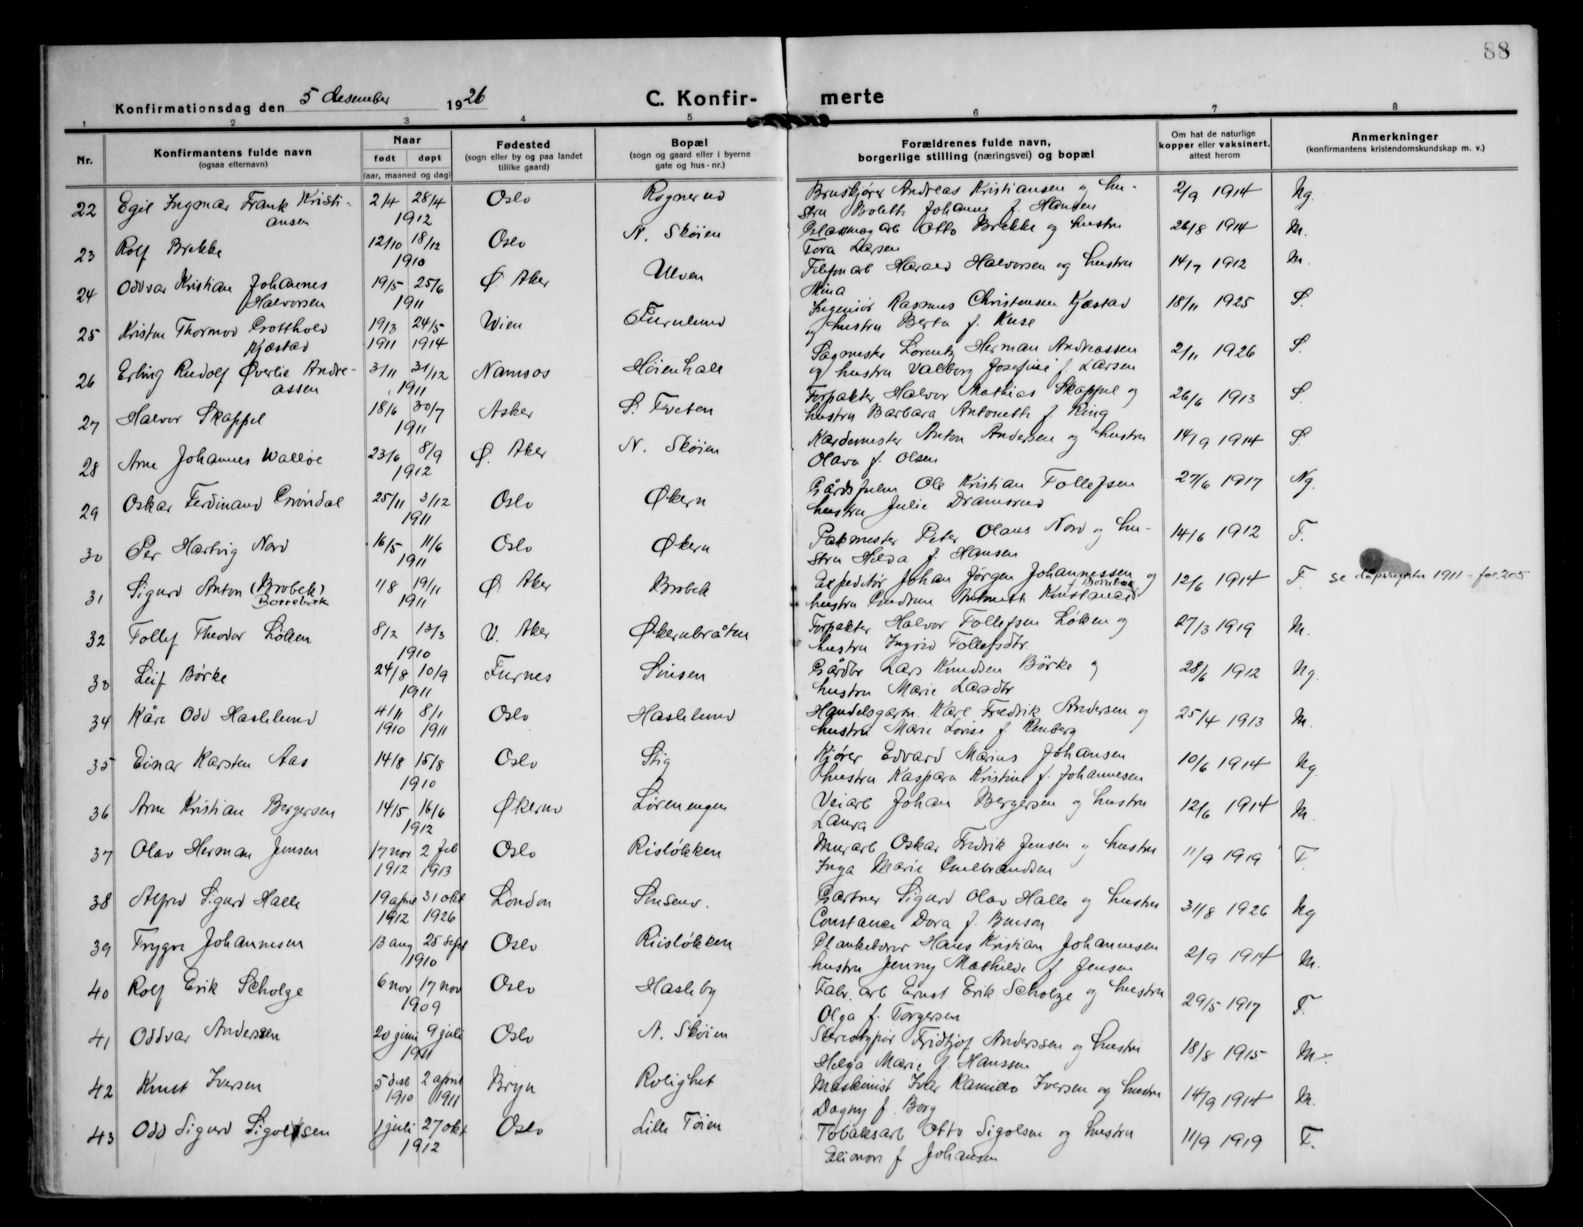 88
Konfirmationsdag den 5 desember 1926 C. Konfirmerte
1 2 3 4 5 6 7 8
Nr.
Konfirmantens fulde navn
(ogsaa efternavn)
Naar
født døpt
(aar, maaned og dag)
Fødested
(sogn eller by og paa landet
tillike gaard)
Bopæl
(sogn og gaard eller i byerne
gate og hus-nr.)
Forældrenes fulde navn,
borgerlige stilling (næringsvei) og bopæl
Om hat de naturlige
kopper eller vaksinert,
attest herom
Anmerkninger
(konfirmantens kristendomskundskap m. v.)
22 Egil Ingmar Frank Kristi- 2/4 28/4 Oslo Rognerud Bruskjører Andreas Kristiansen og hu- 2/9 1914 Ng.
ansen 1912 stru Bolette Johanne f. Hansen
23 Rolf Brekke 12/10 18/12 Oslo N. Skøien Glassmag arb Otto Brekke og hustru 26/8 1914 M.
1910 Tora Larsen
24 Oddvar Kristian Johannes 19/5 25/6 Ø. Aker Ulven Telefonarb Harald Halvorsen og hustru 14/7 1912 M.
Halvorsen 1911 Mina
25 Kristen Thormod Grotthold 19/3 24/5 Wien Furulund Ingeniør Rasmus Christensen Kjæstad 18/11 1925 S.
Kjæstad 1911 1914 og hustru Berta f. Kuse
26 Erling Rudolf Øverlie Andre- 3/11 31/12 Namsos Høienhall Sagmester Lorentz Herman Andreassen 2/11 1926 S.
assen 1911 og hustru Valborg Josefine f. Larsen
27 Halvor Skappel 18/6 30/7 Asker S. Tveten Forpakter Halvor Mathias Skappel og 26/6 1913 S.
1911 hustru Barbara Antonette f. Ring
28 Arne Johannes Walløe 23/6 8/9 Ø. Aker N. Skøien Kardemester Anton Andersen og hustru 14/9 1914 S
1912 Olava f. Olsen
29 Oskar Ferdinand Grøndal 25/11 3/12 Oslo Økern Gårdsfulm Ole Kristian Tollefsen 27/6 1917 Ng.
1911 hustru Julie Dramsrud
30 Per Hartvig Nord 16/5 11/6 Oslo Økern Pakmester Peter Olaus Nord og hu- 14/6 1912 T.
1911 stru Hilda f. Hansen
31 Sigurd Anton (Brobek) 1/8 19/11 Ø. Aker Brobek Expeditør Johan Jørgen Johannessen og 12/6 1914 T. se dåpsregister 1911 - fol. 205
Borrebæk 1911 hustru Gudrun Antonette Konstance
32 Tollef Theodor Løken 8/2 13/3 V. Aker Økernbråten Forpakter Halvor Tollefsen Løken og 27/3 1919 M.
1910 hustru Ingrid Tollefsdtr.
33 Leif Børke 24/8 10/9 Furnes Sinsen Gårdbr Lars Knudsen Børke og 28/6 1912 Ng.
1911 hustru Marie Larsdtr
34 Kåre Odd Haslelund 4/11 8/1 Oslo Haslelund Handelsgartn. Karl Fredrik Andersen og 25/4 1913 M.
1910 1911 hustru Marie Lovise f. Renberg
35 Einar Karsten Aas 14/8 15/8 Oslo Stig Kjører Edvard Marius Johansen 10/6 1914 Ng.
1910 hustru Kaspara Kristine f. Johannesen
36 Arne Kristian Bergersen 14/5 16/6 Økern Lørenengen Veiarb Johan Bergersen og hustru 12/6 1914 M.
1912 Laura
37 Olav Herman Jensen 17 nov 2 feb Oslo Risløkken Murarb Oskar Fredrik Jensen og hustru 11/9 1919 T.
1912 1913 Inga Marie Gulbrandsen
38 Alfred Sigurd Halle 19 april 31 okt London Sinsenv. Gartner Sigurd Olav Halle og hustru 31/8 1926 Ng
1912 1926 Constance Dora f. Benson
39 Trygve Johannesen 13 aug 25 sept Oslo Risløkken Plankebærer Hans Kristian Johannesen 2/9 1914 M.
1910 hustru Jenny Mathilde f. Jensen
40 Rolf Erik Scholze 6 nov 17 nov Oslo Hasleby Fabr. arb Ernst Erik Scholze og hustru 29/5 1917 T.
1909 Olga f. Torgersen
41 Oddvar Anderssen 20 juni 9 juli Oslo N. Skøien Stereotypør Fridtjof Anderssen og hustru 18/8 1915 M.
1911 Helga Marie f. Hanssen
42 Knut Iversen 5 des 2 april Bryn Rolighet Maskinist Ivar Kamillo Iversen og hustru 14/9 1914 M.
1910 1911 Dagny f. Borg
43 Odd Sigurd Sigolsen 1 juli 27 okt Oslo Lille Tøien Tobaksarb Otto Sigolsen og hustru 11/9 1919 T.
1912 Elionore f Johansen